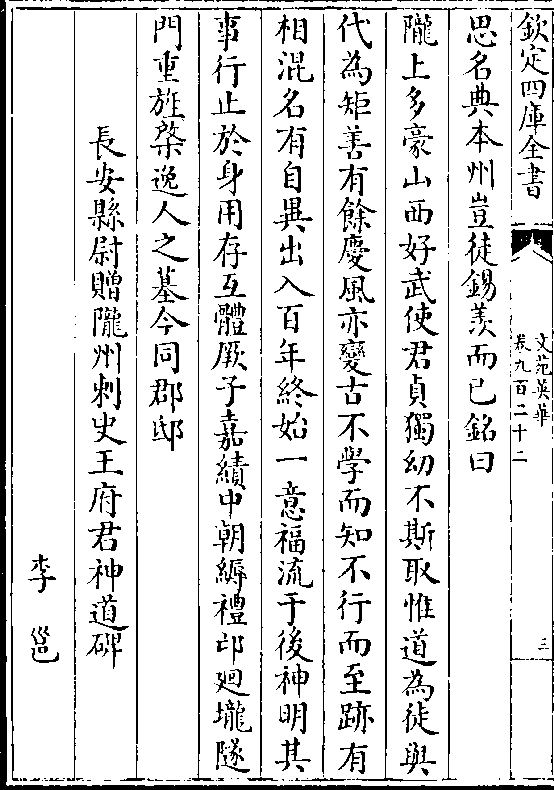 欽定四庫全書
文苑英華
卷九百二十二
三
思名典本州豈徒錫羨而已銘曰
隴上多豪山西好武使君貞獨幼不斯取惟道為徒與
代為矩善有餘慶風亦變古不學而知不行而至跡有
相混名有自異出入百年終始一意福流于後神明其
事行止於身用存互體厥子嘉績中朝縟禮卭廻壠隧
門重旌棨逸人之墓今同郡邸
長安縣尉贈隴州刺史王府君神道碑
李邕